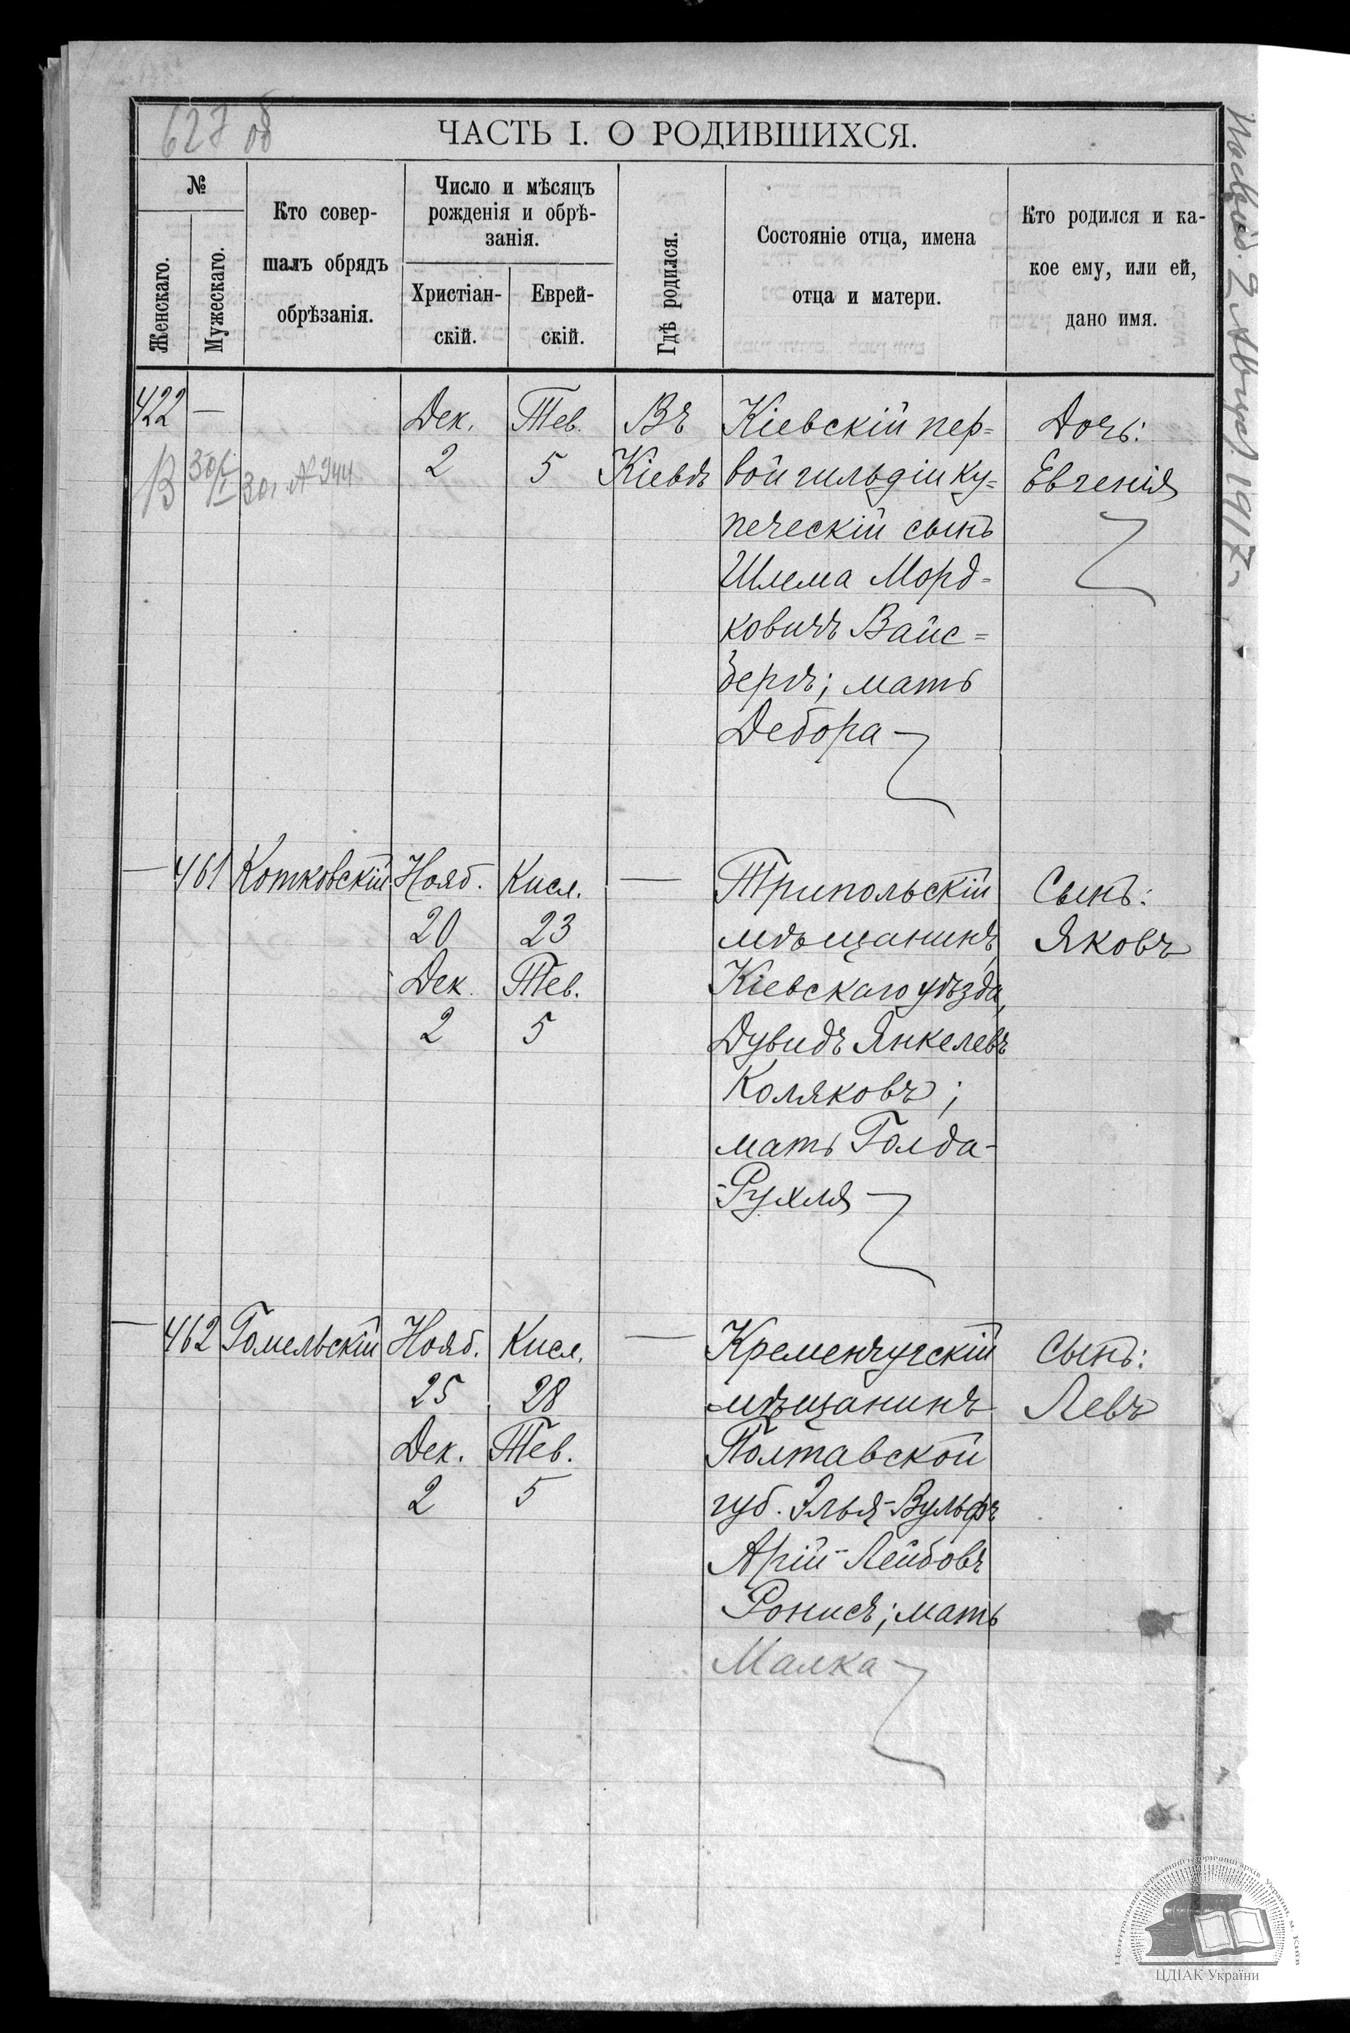 627 об
ЧАСТЬ I. О РОДИВШИХСЯ.
№
Женскаго.
Мужескаго.
Кто совер-
шалъ обрядъ
обрѣзанія.
Число и мѣсяцъ
рожденія и обрѣ-
занія.
Христіан-
скій.
Еврей-
скій.
Гдѣ родился.
Состояніе отца, имена
отца и матери.
Кто родился и ка-
кое ему, или ей,
дано имя.
422
—
Дек.
2
Тев.
5
Въ
Кіевѣ
Кіевскій пер=
вой гильдіи ку=
печескій сынъ
Шлема Морд=
ковичъ Вайс=
бергъ; мать
Дебора
Дочь:
Евгенія
В
№ 944
— 461
Котковскій
Нояб.
20
Дек.
2
Кисл.
23
Тев.
5
—
Трипольскій
мѣщанинъ,
Кіевскаго уѣзда,
Дувидъ Янкелевъ
Коляковъ;
мать Голда-
-Рухля
Сынъ:
Яковъ
— 462
Гомельскій
Нояб.
25
Дек.
2
Кисл.
28
Тев.
5
—
Кременчугскій
мѣщанинъ
Полтавской
губ. Элья-Вульфъ
Арій-Лейбовъ
Ронисъ; мать
Малка
Сынъ:
Левъ
1917
Центральний державний історичний архів України, м. Київ
ЦДІАК України